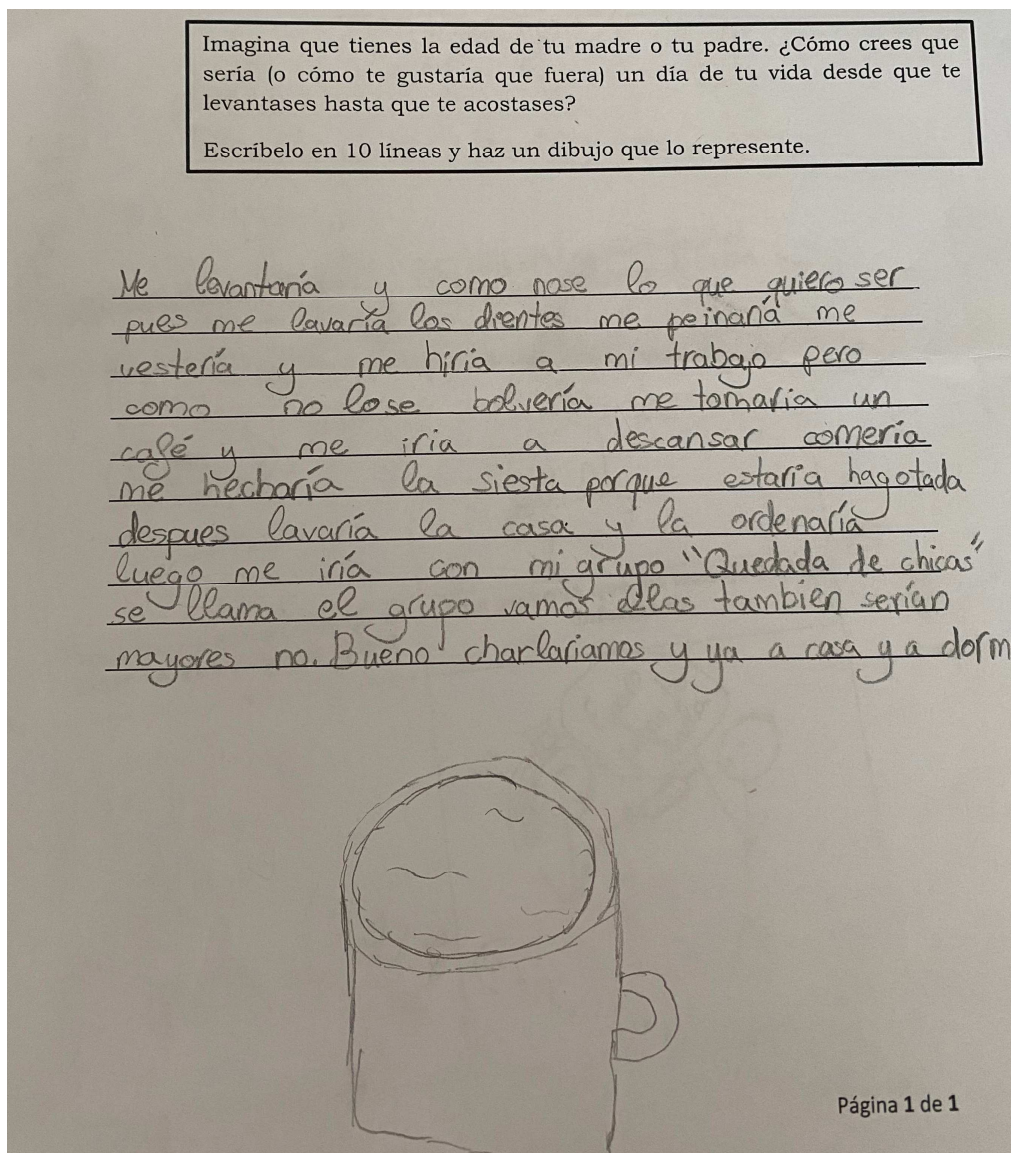 Imagina que tienes la edad de tu madre o tu padre. ¿Cómo crees que
sería (o cómo te gustaría que fuera) un día de tu vida desde que te
levantases hasta que te acostases?
Escríbelo en 10 líneas y haz un dibujo que lo represente.
Me levantaría y como nose lo que quiero ser
pues me lavaría los dientes me peinaría me
vestería y me hiria a mi trabajo pero
como no lose bolvería me tomaria un
café y me iria a descansar comería
me hecharía la siesta porque estaría hagotada
despues lavaría la casa y la ordenaría
luego me iría con mi grupo "Quedada de chicas"
se llama el grupo vamos ellas tambien serían
mayores no. Bueno charlariamos y ya a casa y a dorm
Página 1 de 1